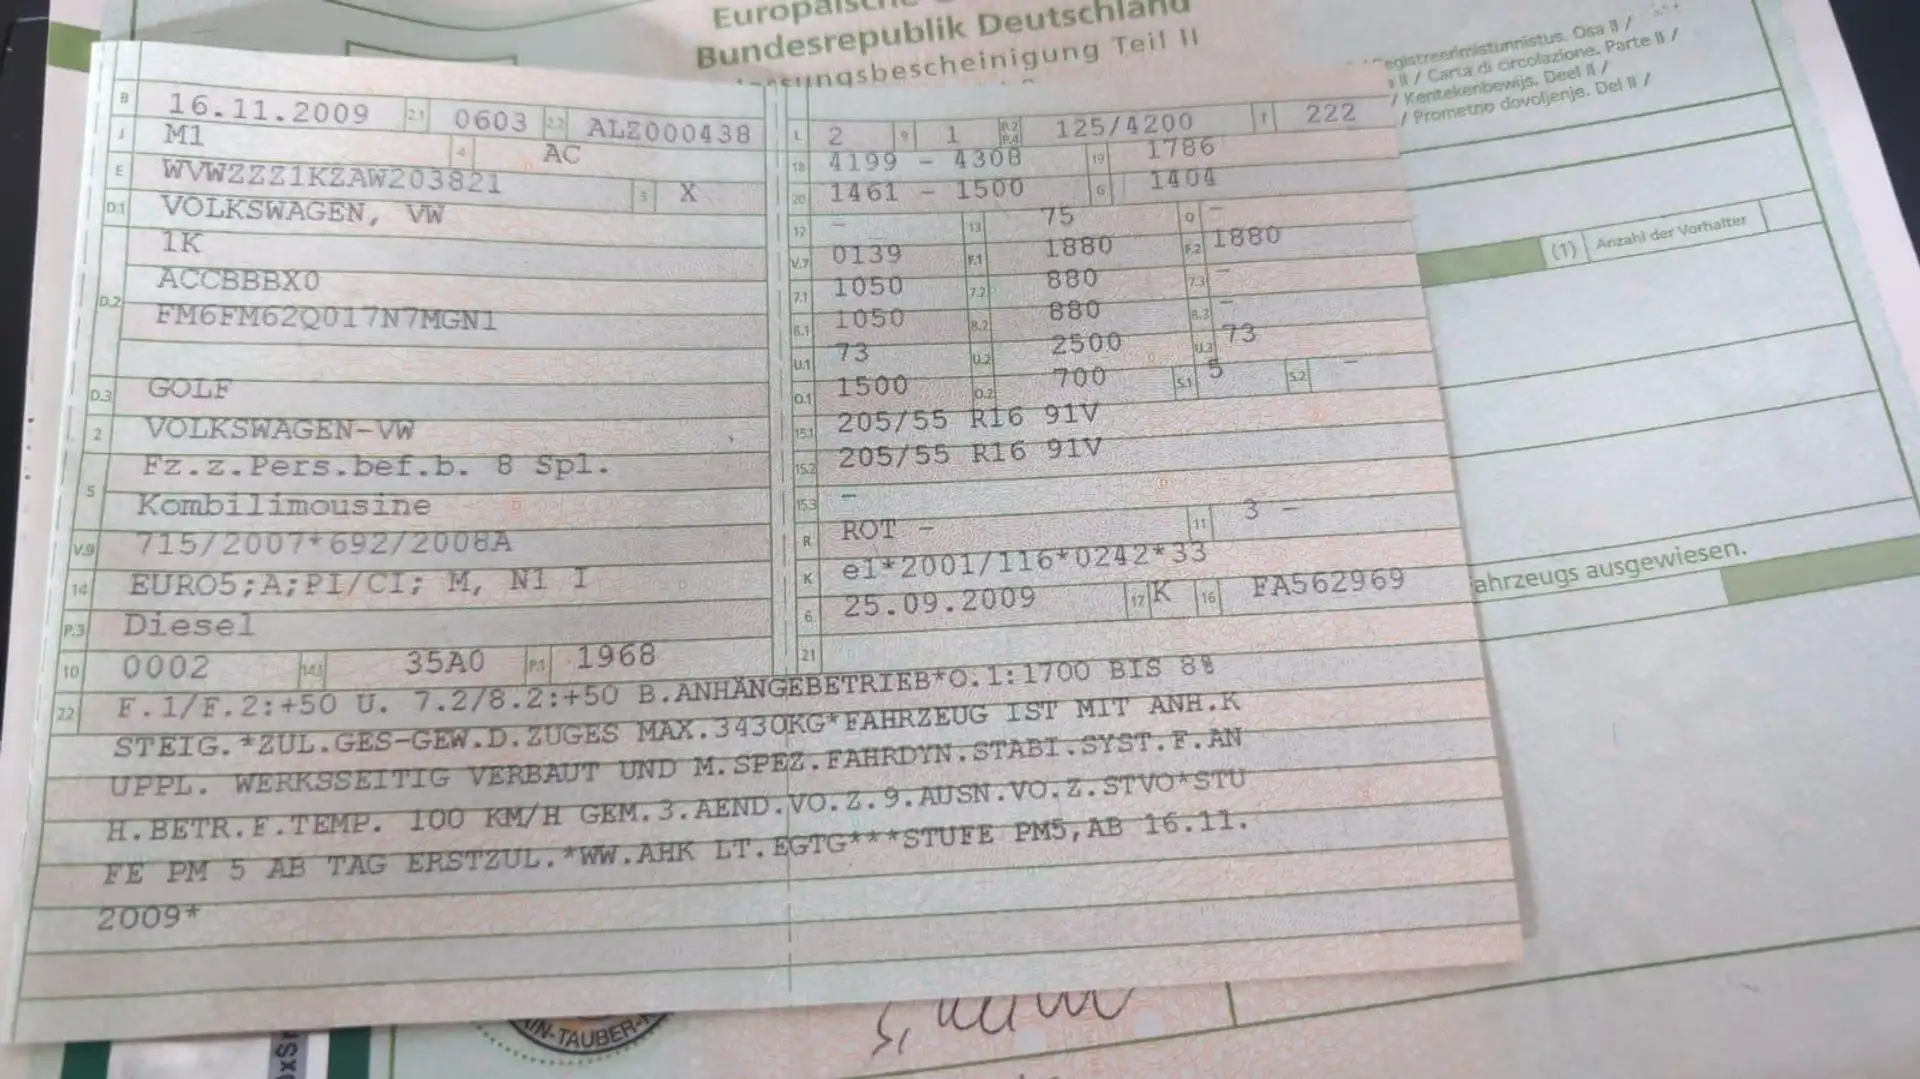 Bundesrepublik Deutschland
Teil II
Osa II /
II / Carta di circolazione. Parte II /
/ Kentekenbewijs. Deel II /
/ Prometno dovoljenje. Del II /
B 16.11.2009 2.1 0603 2.2 ALZ000438
J M1 4 AC
E WVWZZZ1KZAW203821 3 X
D.1 VOLKSWAGEN, VW
1K
D.2 ACCBBBX0
FM6FM62Q017N7MGN1
D.3 GOLF
2 VOLKSWAGEN-VW
5 Fz.z.Pers.bef.b. 8 Spl.
Kombilimousine
V.9 715/2007*692/2008A
14 EURO5;A;PI/CI; M, N1 I
P.3 Diesel
10 0002 14.1 35A0 P.1 1968
L 2 9 1 P.2 P.4 125/4200 T 222
18 4199 - 4308 19 1786
20 1461 - 1500 G 1404
12 - 13 75 Q -
V.7 0139 F.1 1880 F.2 1880
7.1 1050 7.2 880 7.3 -
8.1 1050 8.2 880 8.3 -
U.1 73 U.2 2500 U.3 73
O.1 1500 O.2 700 S.1 5 S.2 -
15.1 205/55 R16 91V
15.2 205/55 R16 91V
15.3 -
R ROT - 11 3 -
K e1*2001/116*0242*33
6 25.09.2009 17 K 16 FA562969
21
22 F.1/F.2:+50 U. 7.2/8.2:+50 B.ANHÄNGEBETRIEB*O.1:1700 BIS 8%
STEIG.*ZUL.GES-GEW.D.ZUGES MAX.3430KG*FAHRZEUG IST MIT ANH.K
UPPL. WERKSSEITIG VERBAUT UND M.SPEZ.FAHRDYN.STABI.SYST.F.AN
H.BETR.F.TEMP. 100 KM/H GEM.3.AEND.VO.Z.9.AUSN.VO.Z.STVO*STU
FE PM 5 AB TAG ERSTZUL.*WW.AHK LT.EGTG***STUFE PM5,AB 16.11.
2009*
(1) Anzahl der Vorhalter
ahrzeugs ausgewiesen.
IN-TAUBER-